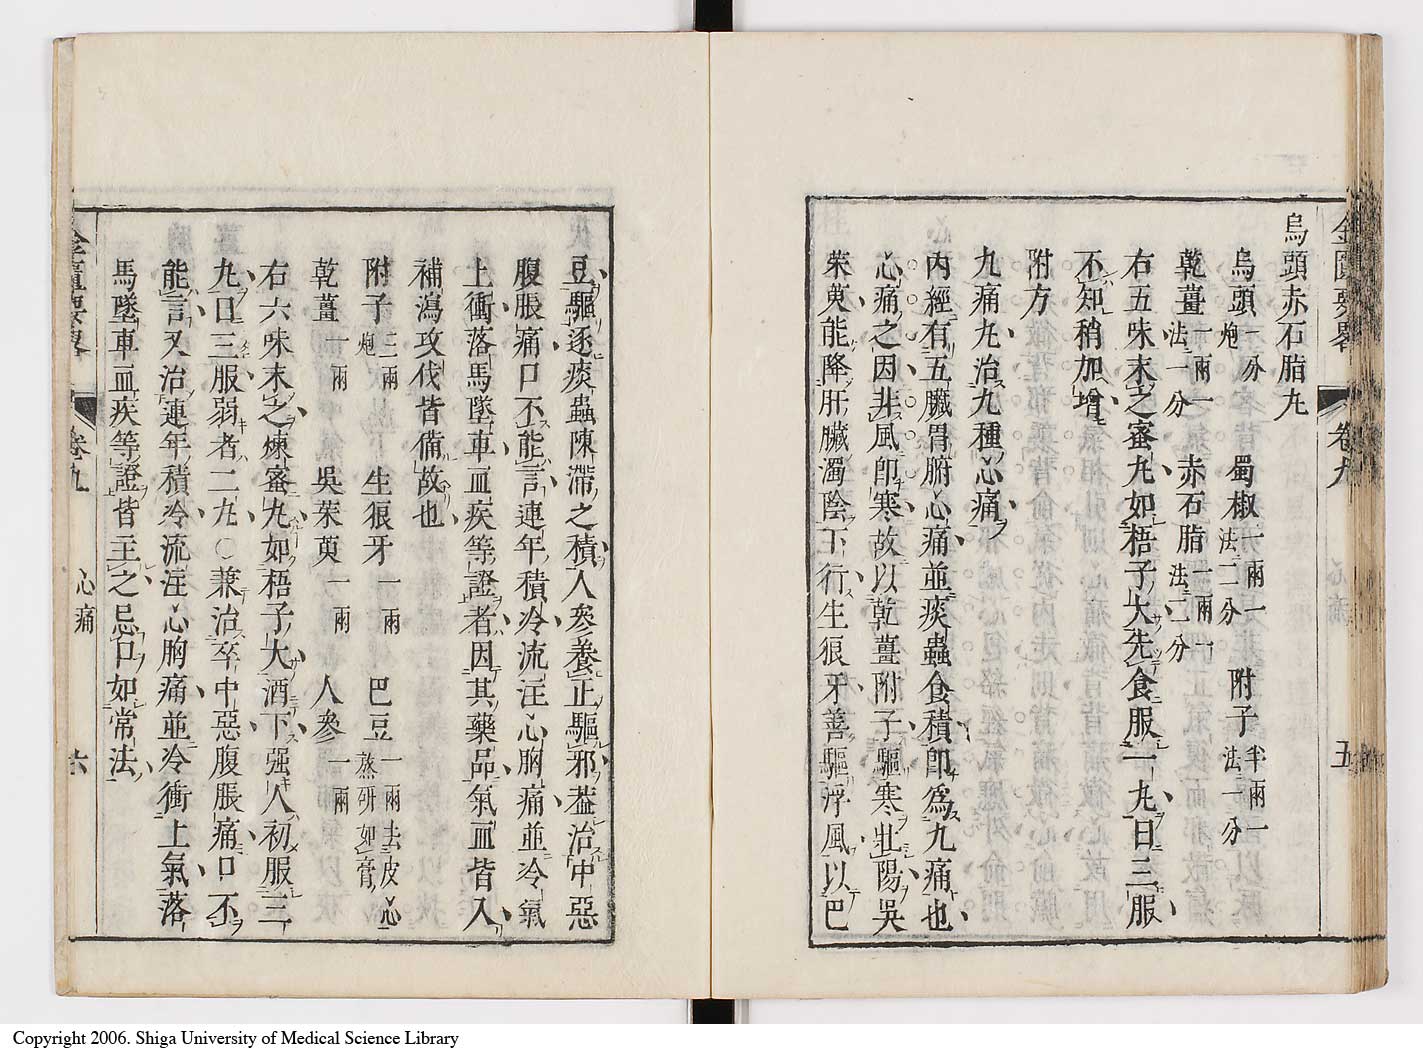 金匱要畧 卷九 心痛 五
烏頭赤石脂丸
烏頭一分炮 蜀椒一兩一法二分 附子半兩一法一分
乾薑一兩一法一分 赤石脂一兩一法二分
右五味末之蜜丸如梧子大先食服一丸日三服
不知稍加增
附方
九痛丸治九種心痛
內經有五臟胃腑心痛並痰蟲食積即爲九痛也
心痛之因非風即寒故以乾薑附子驅寒壯陽吳
茱萸能降肝臟濁陰下行生狠牙善驅浮風以巴
豆驅逐痰蟲陳滯之積人參養正驅邪葢治中惡
腹脹痛口不能言連年積冷流注心胸痛並冷氣
上衝落馬墜車血疾等證者因其藥品氣血皆入
補瀉攻伐皆備故也
附子三兩炮 生狠牙一兩 巴豆一兩去皮心熬研如膏
乾薑一兩 吳茱萸一兩 人參一兩
右六味末之煉蜜丸如梧子大酒下强人初服三
丸日三服弱者二丸○兼治卒中惡腹脹痛口不
能言又治連年積冷流注心胸痛並冷衝上氣落
馬墜車血疾等證皆主之忌口如常法
金匱要畧 卷九 心痛 六
Copyright 2006. Shiga University of Medical Science Library